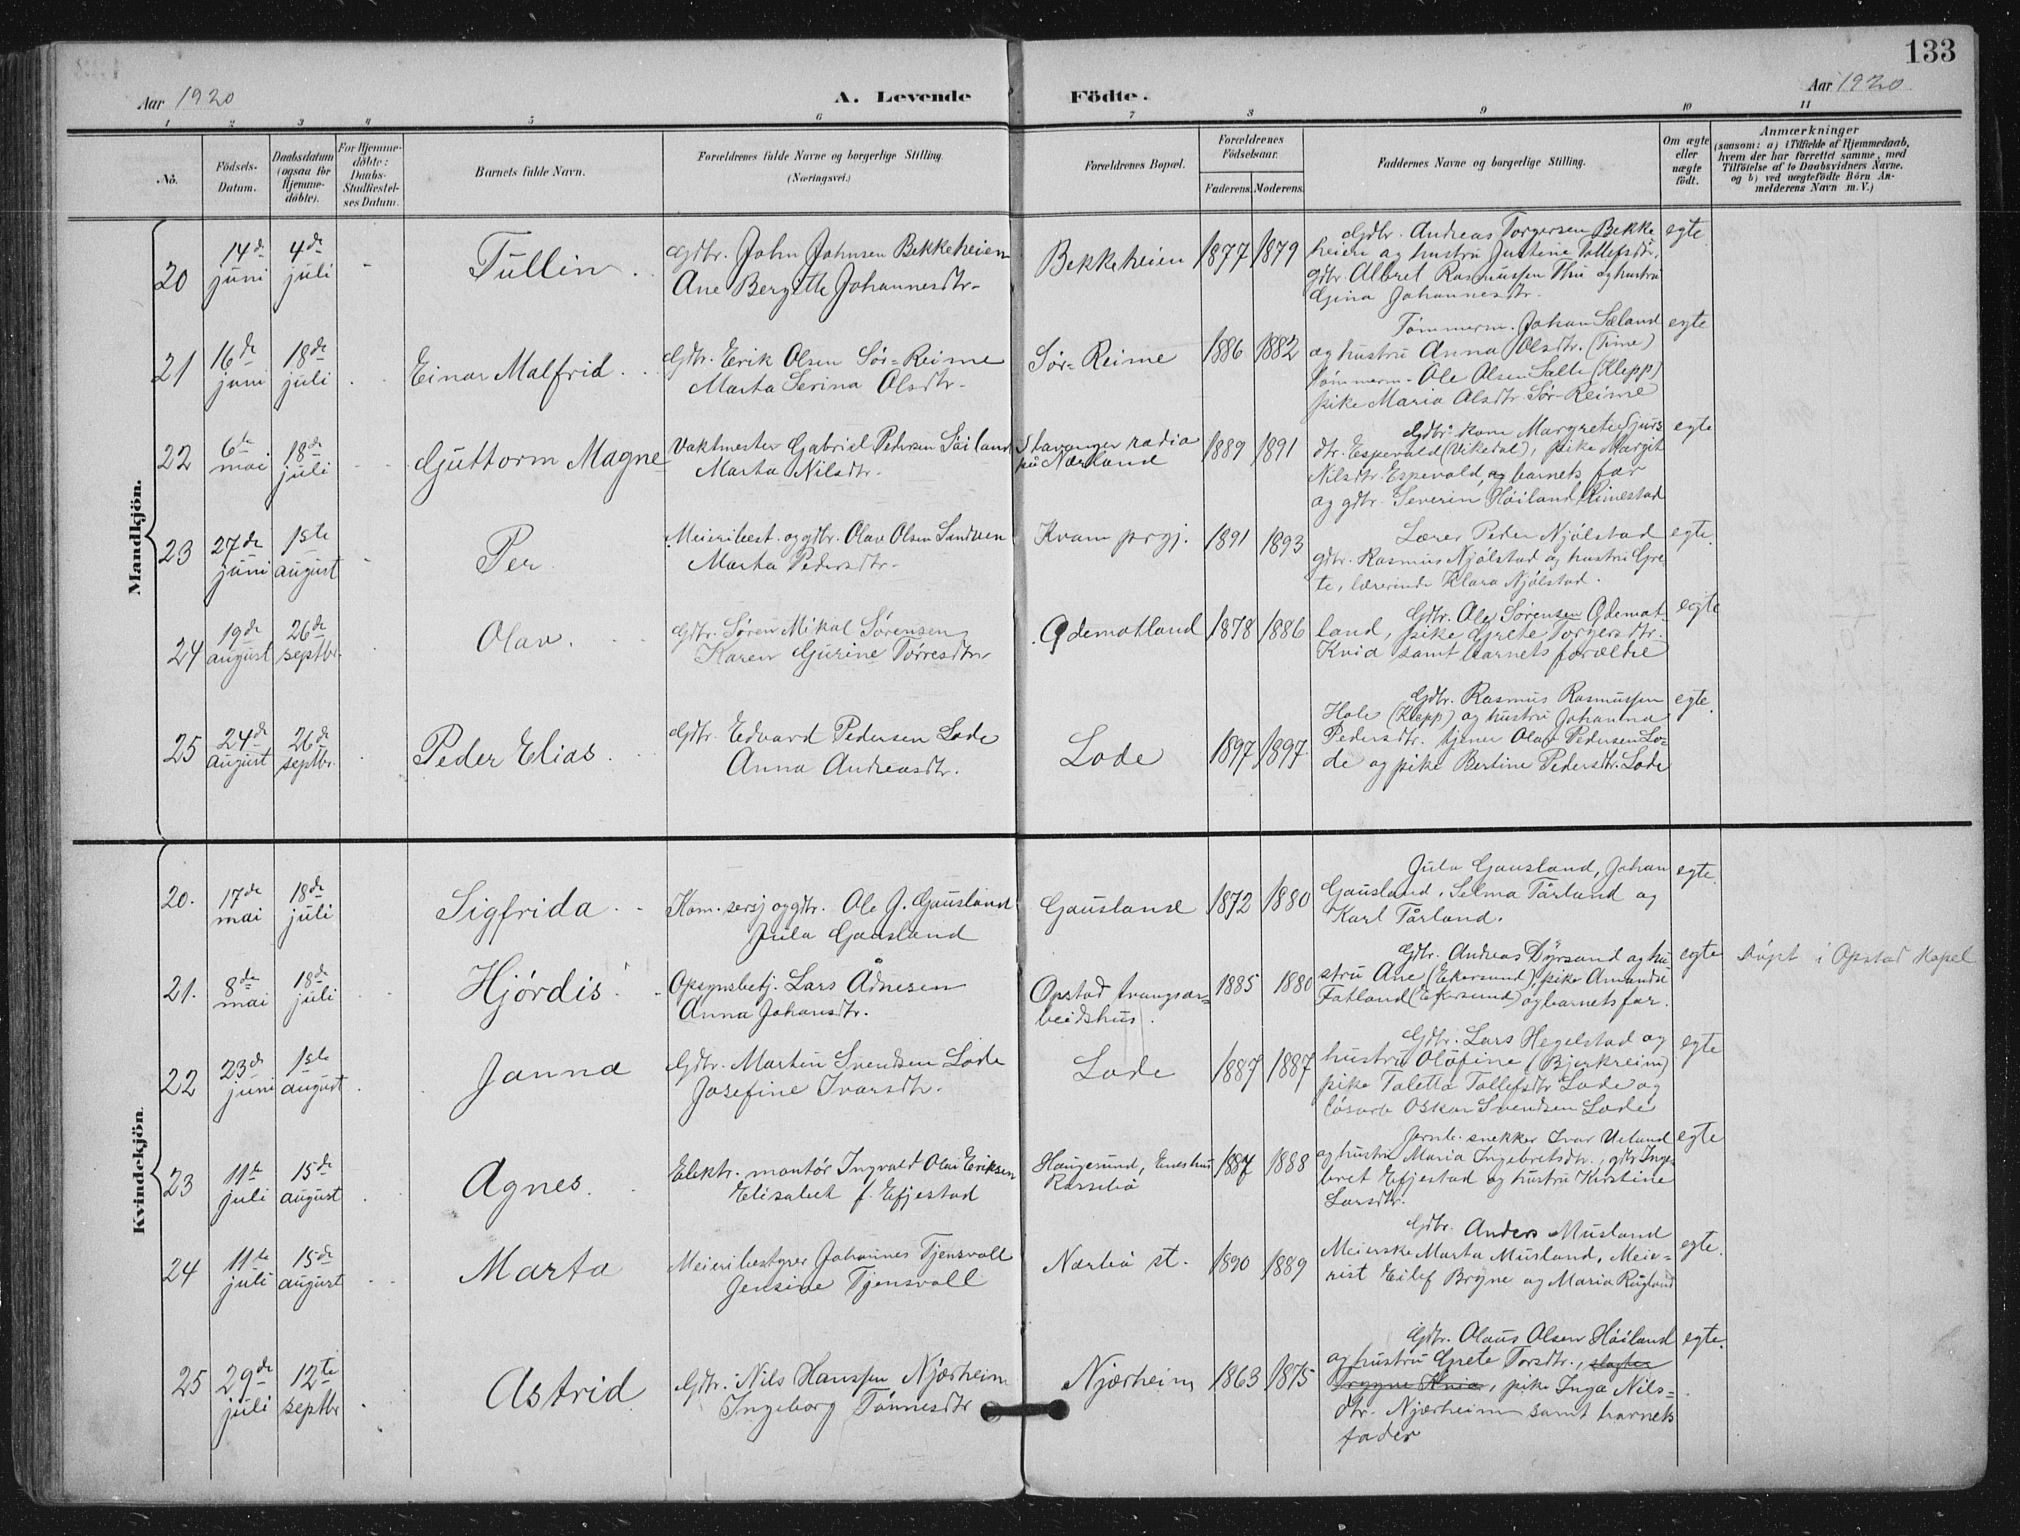 133
Aar 1920
A. Levende Födte.
Aar 1920
1 2 3 4 5 6 7 8 9 10 11
No.
Födsels-Datum.
Daabsdatum (ogsaa for Hjemmedöbte).
For Hjemmedöbte: Daabs-Stadfiestelses Datum.
Barnets fulde Navn.
Forældrenes fulde Navne og borgerlige Stilling. (Næringsvei.)
Forældrenes Bopæl.
Forældrenes Födselsaar.
Faderens. Moderens.
Faddernes Navne og borgerlige Stilling.
Om ægte eller uægte födt.
Anmærkninger
(saasom: a) i Tilfælde af Hjemmedaab, hvem der har forrettet samme, med Tilföielse af to Daabsvidners Navne. og b) ved uægtefödte Börn Anmelderens Navn m. V.)
Mandkjön.
20 14de juni 4de juli - Tullin
Gdbr. John Johnsen Bekkeheien
Ane Bergitte Johannesdtr.
Bekkeheien 1877 1879
Gdbr. Andreas Torgersen Bekke
heien og hustru Justine Tollefsdtr,
gdbr Albret Rasmussen Thu og hustru
Gina Johannesdtr.
egte
21 16de juni 18de juli Einar Malfrid
Gdbr. Erik Olsen Sør-Reime
Marta Serina Olsdtr.
Sør-Reime 1886 1882
Tømmerm. Johan Sæland
og hustru Anna Olsdtr. (Time)
tømmerm. Ole Olsen Salte (Klepp)
pike Maria Olsdtr Sør-Reime
egte
22 6te mai 18de juli Guttorm Magne
Vaktmester Gabriel Pedersen Höiland
Marta Nilsdtr.
Stavanger radio
på Nærland
1889 1891
Gdbr. kone Margrete Sjurs
dtr. Espevold (Vikedal), pike Margit
Nilsdtr. Espevold, og barnets far
og gdbr. Severin Höiland Rimestad
egte
23 27de juni 1ste august Per
Meieribest. og gdbr. Olav Olsen Sandven
Marta Pedersdtr.
Kvam prgj. 1891 1893
Lærer Peder Njölstad
gdbr. Rasmus Njölstad og hustru Gre
te, lærerinde Klara Njölstad.
egte.
24 19de august 26de septbr. Olav.
Gdbr. Sören Mikal Sörensen
Karen Gurine Torresdtr
Odemotland 1878 1886
Gdbr. Ole Sörensen Odemot-
land, pike Grete Torgersdtr.
Kvia samt barnets forældre
egte
25 24de august 26de septbr. Peder Elias
Gdbr. Edvard Pedersen Lode
Anna Andreasdtr.
Lode 1897 1897
Gdbr. Rasmus Rasmussen
Hole (Klepp) og hustru Johanna
Pedersdtr. tjener Olav Pedersen Lo-
de og pike Bertine Pedersdtr. Lode
egte.
Kvindekjön.
20. 17de mai 18de juli Sigfrida
Kom. sersj og gdbr. Ole J. Gausland
Jula Gausland
Gausland 1872 1880
Jula Gausland, Johan
Gausland, Selma Tårland og
Karl Tårland.
egte.
21. 8de mai 18de juli Hjördis
Opsynsbetj. Lars Ådnesen
Anna Johansdtr.
Opstad tvangsar-
beidshus.
1885 1880
Gdbr. Andreas Dyrsand og hu
stru Ane (Eekersund), pike Amanda
Fatland (Eekersund) og barnets far.
egte
Döpt i Opstad Kapel
22 23de juni 1ste august Janna
Gdbr. Martin Svendsen Lode
Josefine Ivarsdtr.
Lode 1887 1887
Gdbr. Lars Hegelstad og
hustru Olöfine (Bjerkreim)
pike Taletta Tollefsdtr Lode og
lösarb Oskar Svendsen Lode
egte
23 11te juli 15de august Agnes
Elektr. montör Ingvald Olai Eriksen
Elisabet f. Efjestad
Haugesund,
1887 1888
Jernb. snekker Ivar Ueland
og hustru Maria Ingebretsdtr., gdbr Inge
bret Efjestad og hustru Kirstine
Larsdtr.
egte
24 11te juli 15de august Marta
Meieribestyrer Johannes Tjensvoll
Jensine Tjensvoll
Nærbö st. 1890 1889
Gdbr. Anders Musland
Meierske Marta Musland, Meie-
rist Eilef Bryne og Maria Rugland
egte.
25 29de juli 12te septbr Astrid
Gdbr. Nils Hanssen Njærheim
Ingeborg Tönnesdtr
Njærheim 1863 1875
Gdbr. Olaus Olsen Höiland
og hustru Grete Torsdtr.,
pike Inga Nils-
dtr. Njærheim samt barnets
fader
egte.